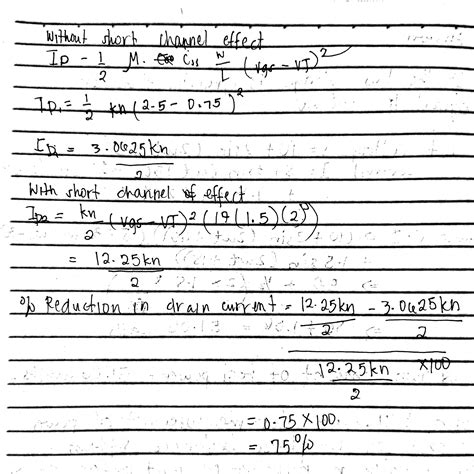 Without short channel effect
I_D - 1/2 μ. C_ss W/L (Vgs - VT)^2
I_D1 = 1/2 kn (2.5 - 0.75)^2
I_D1 = 3.0625kn / 2
With short channel of effect
I_D2 = kn/2 (Vgs - VT)^2 (1+(1.5)(2))
= 12.25kn / 2
% Reduction in drain current = 12.25kn/2 - 3.0625kn/2
12.25kn/2 ×100
= 0.75 × 100.
= 75%